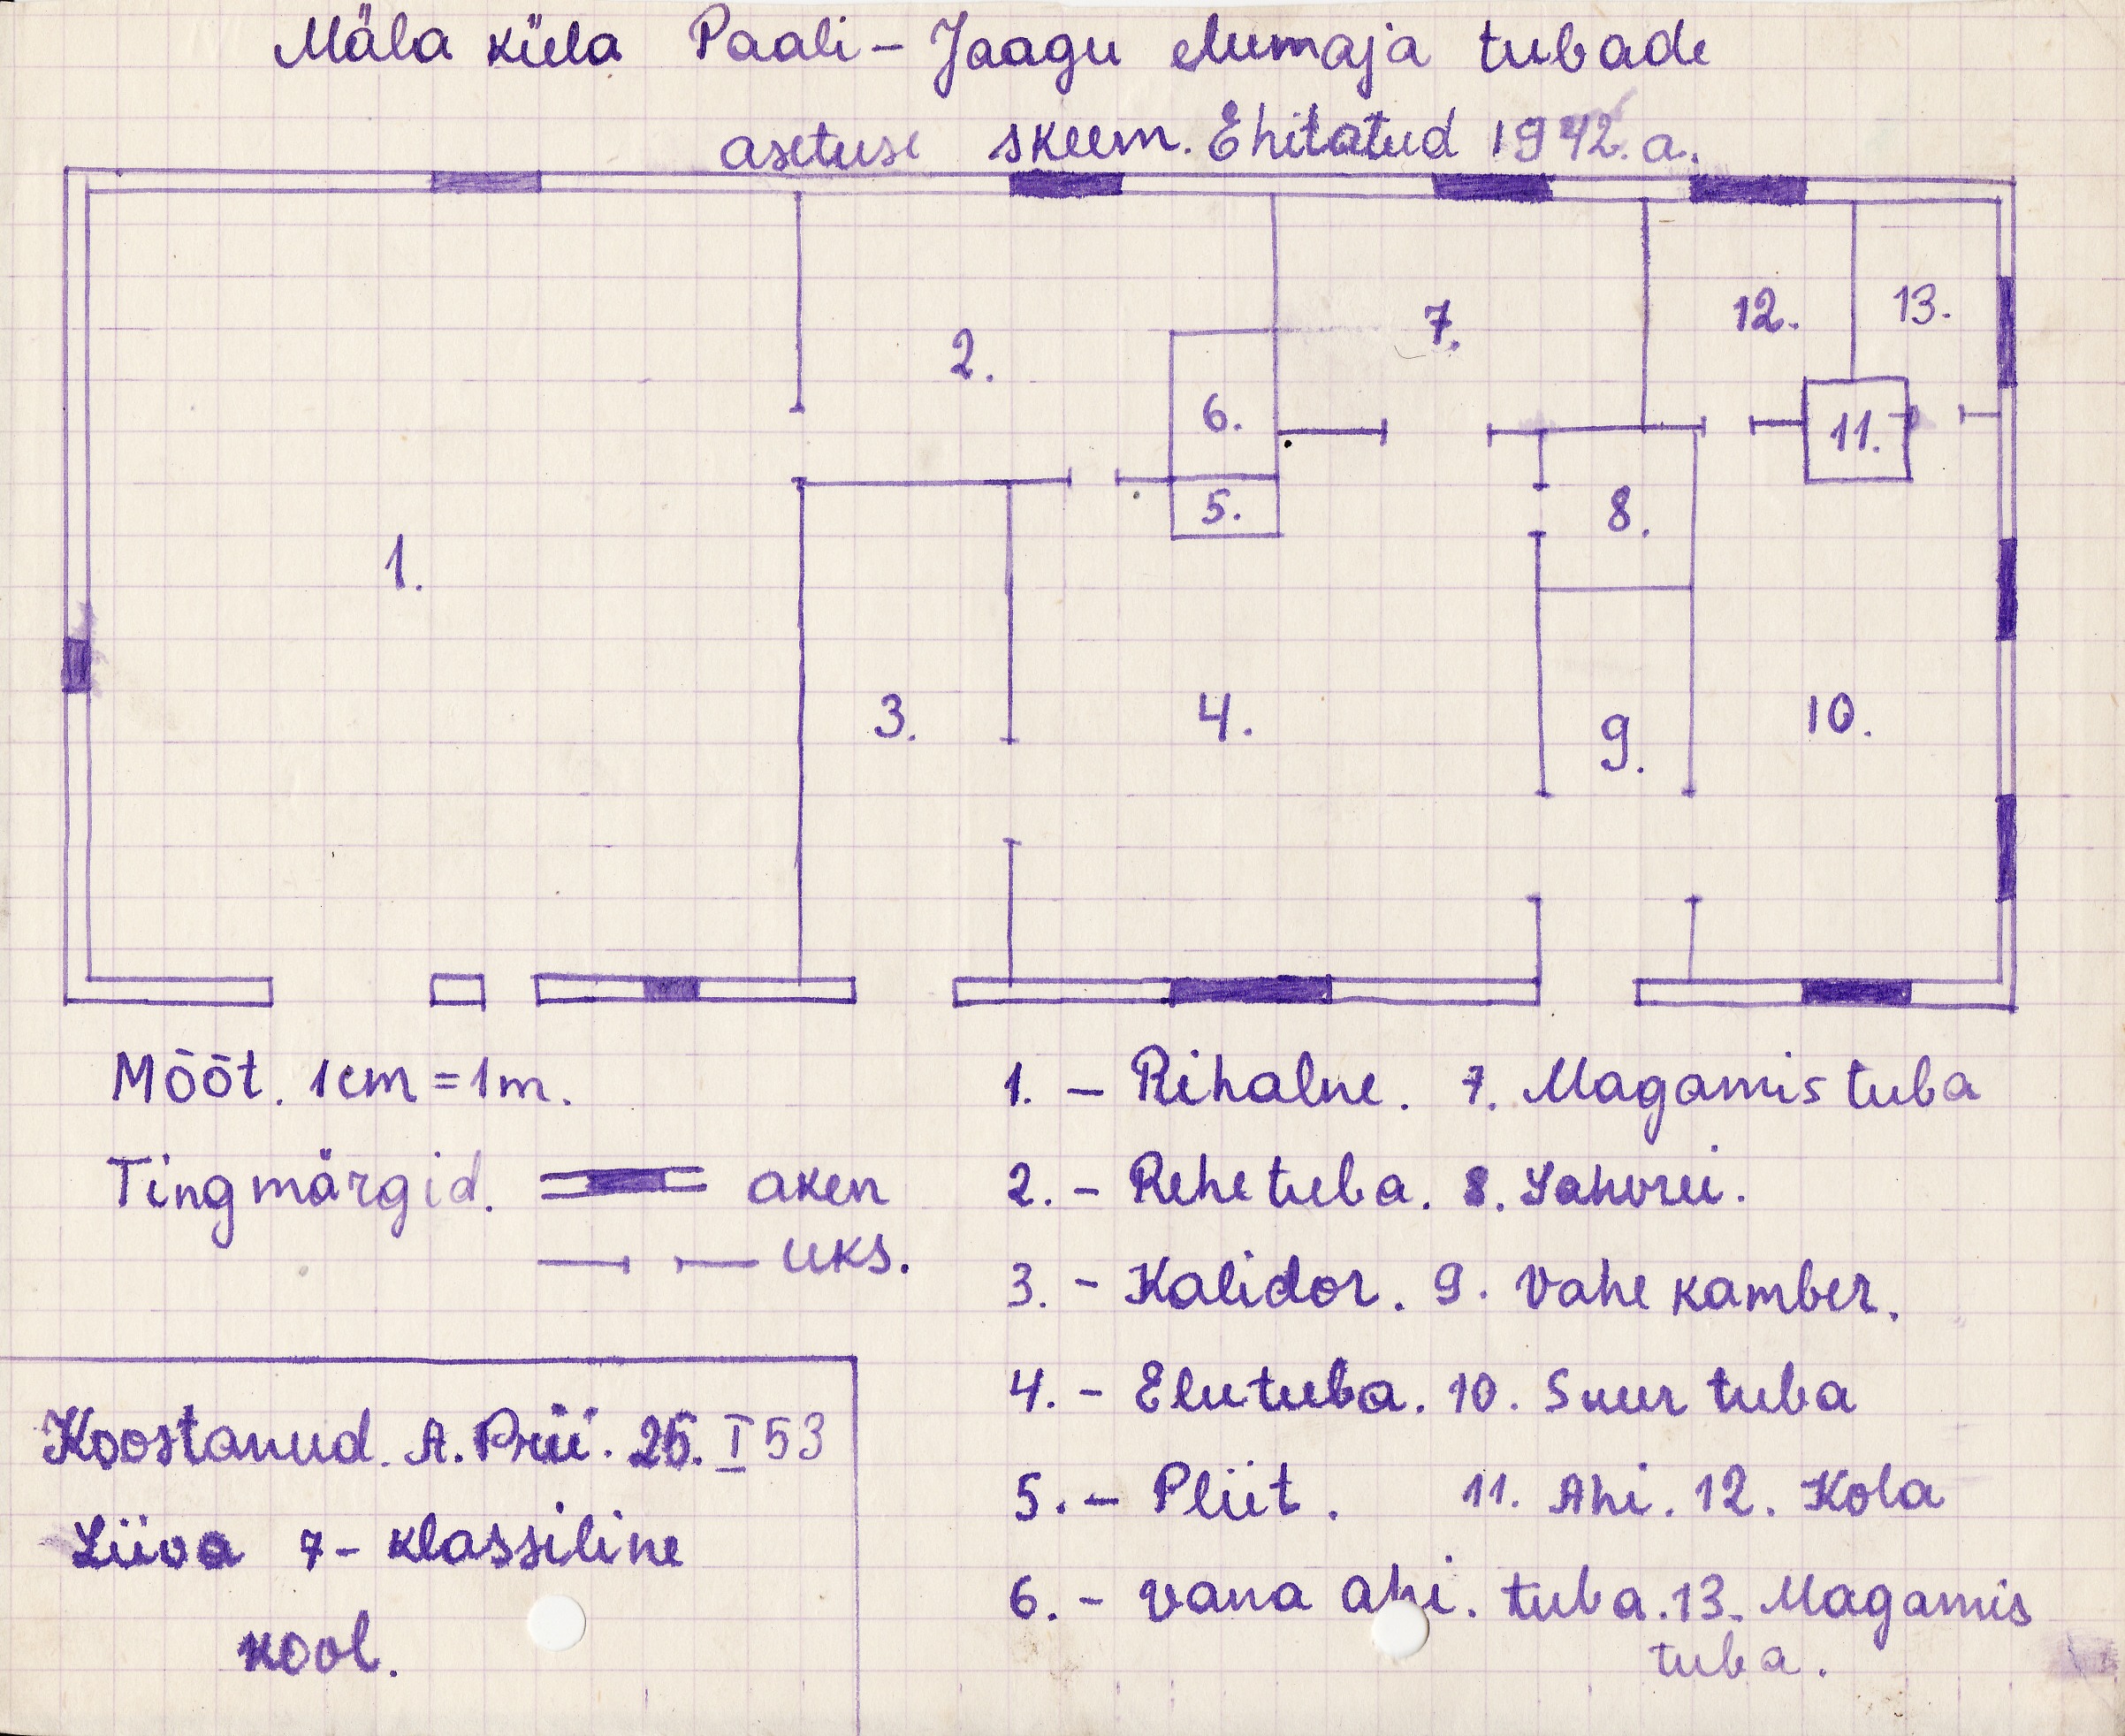 Mäla küla Paali-Jaagu elumaja tubade
asetuse skeem. Ehitatud 1942. a.
1.
2.
3.
4.
5.
6.
7.
8.
9.
10.
11.
12.
13.
Mõõt. 1cm=1m.
Tingmärgid. aken
uks.
1. – Rihalne. 7. Magamis tuba
2. – Rehetuba. 8. Sahvrei.
3. – Kalidor. 9. Vahe kamber.
4. – Elutuba. 10. Suur tuba
5. – Pliit. 11. Ahi. 12. Kola
6. – vana ahi. tuba. 13. Magamis
tuba.
Koostanud. A. Prii. 25. I 53
Liiva 7-klassiline
kool.